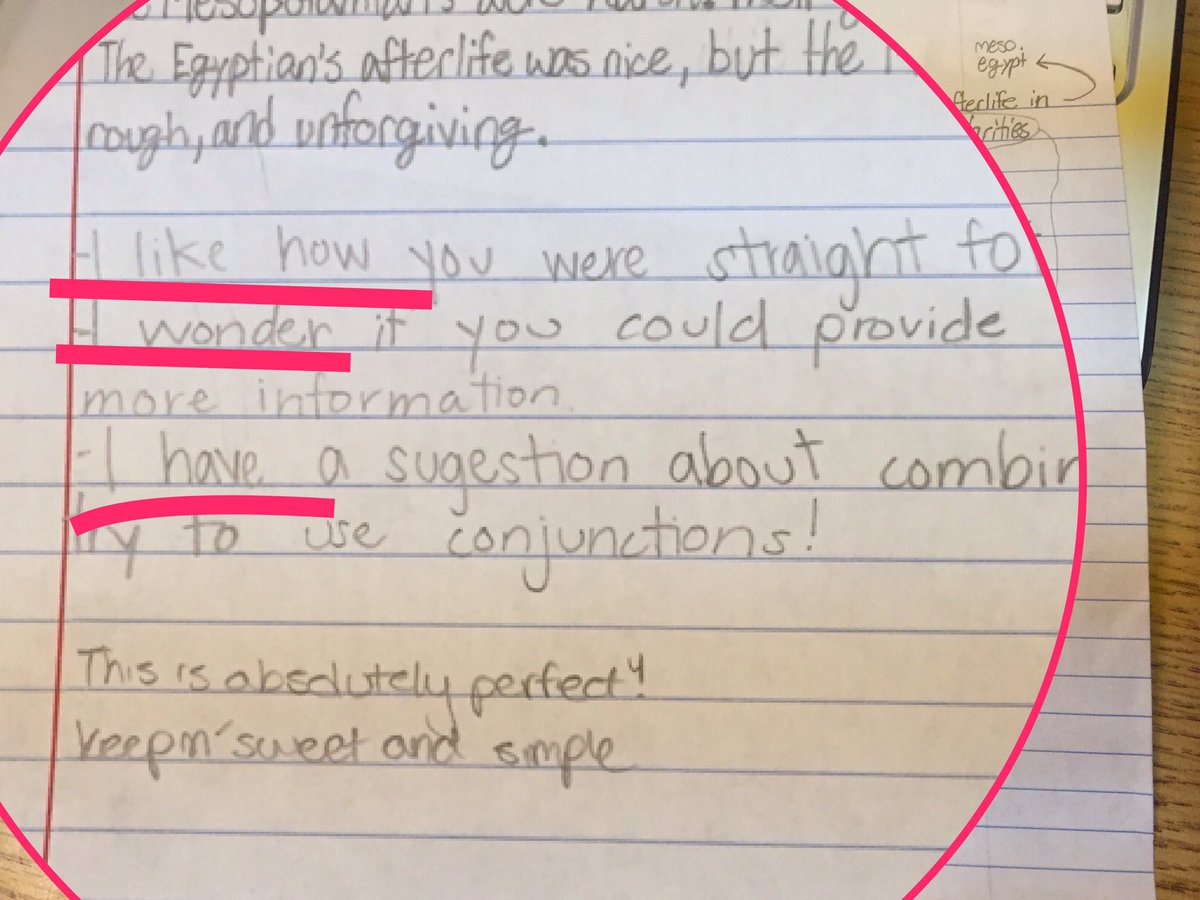 The Egyptian's afterlife was nice, but the
rough, and unforgiving.
-I like how you were straight fo
-I wonder if you could provide
more information.
-I have a sugestion about combin
try to use conjunctions!
This is absolutely perfect!
keepin' sweet and simple
meso.
egypt
fterlife in
arities